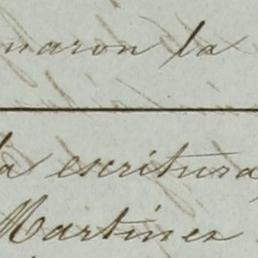 maron la
la escritura
Martinez